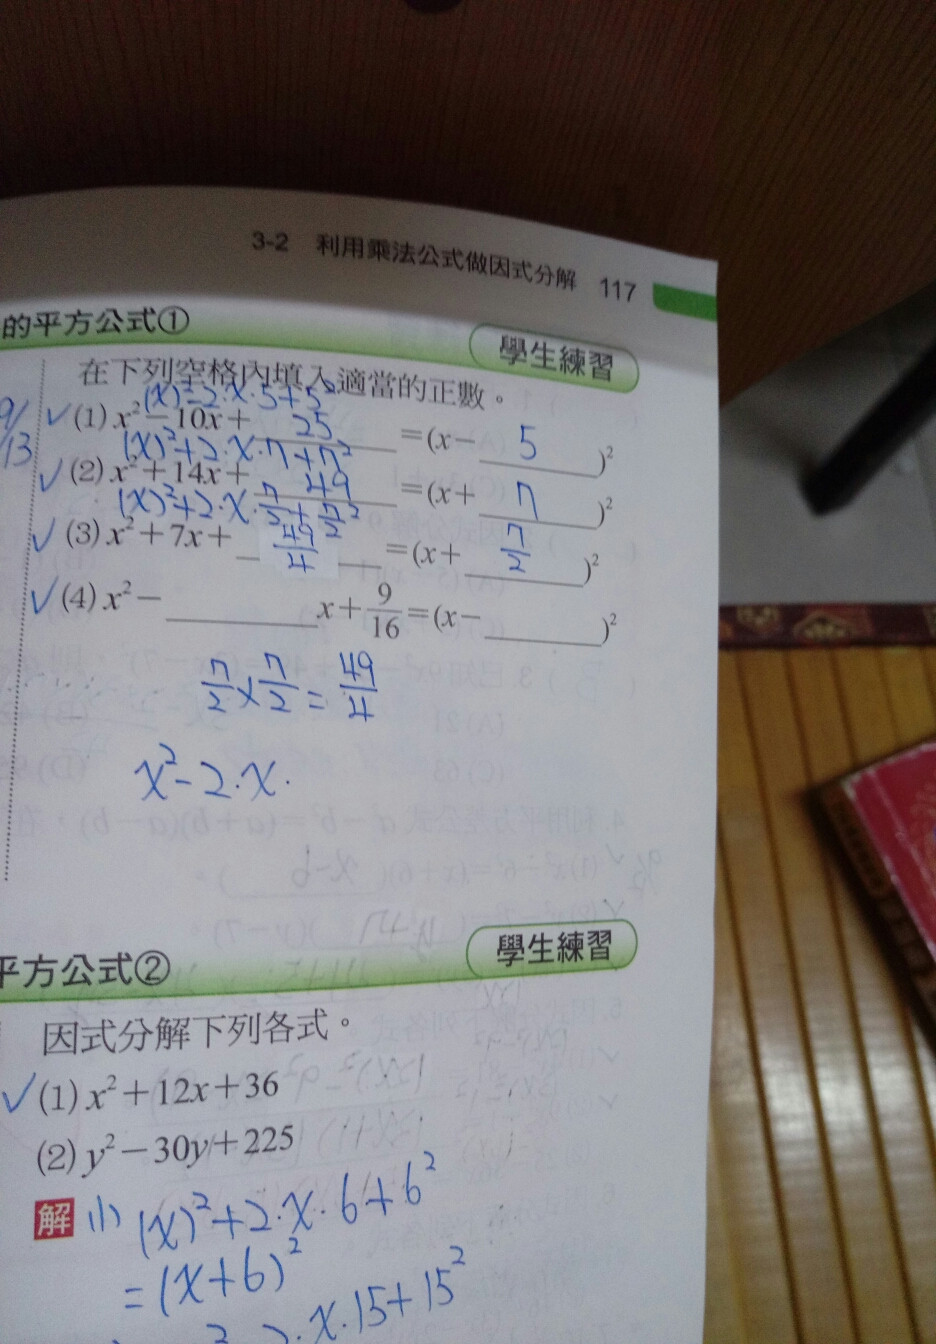 3-2 利用乘法公式做因式分解 117
的平方公式①
學生練習
在下列空格內填入適當的正數。
(x)²-2·x·5+5²
9/13
✓(1) x²-10x+ 25 =(x- 5 )²
(x)²+2·x·7+7²
✓(2) x²+14x+ 49 =(x+ 7 )²
(x)²+2·x·7/2+7/2²
✓(3) x²+7x+ 49/4 =(x+ 7/2 )²
✓(4) x²-______x+9/16=(x-______)²
7/2×7/2=49/4
x²-2·x·
平方公式②
學生練習
因式分解下列各式。
✓(1) x²+12x+36
(2) y²-30y+225
解 (1) (x)²+2·x·6+6²
=(x+6)²
2·x·15+15²